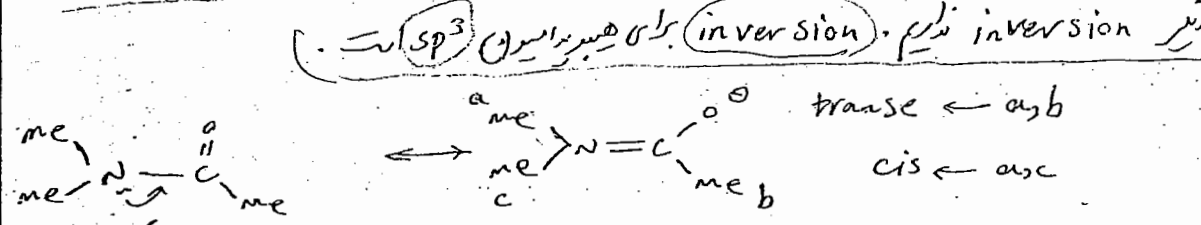 inversion نداریم. inversion برای هیبریداسیون sp³ است.
me me N — C O me ↔ a me me c N = C O⊖ me b
transe ← a,b
cis ← a,c